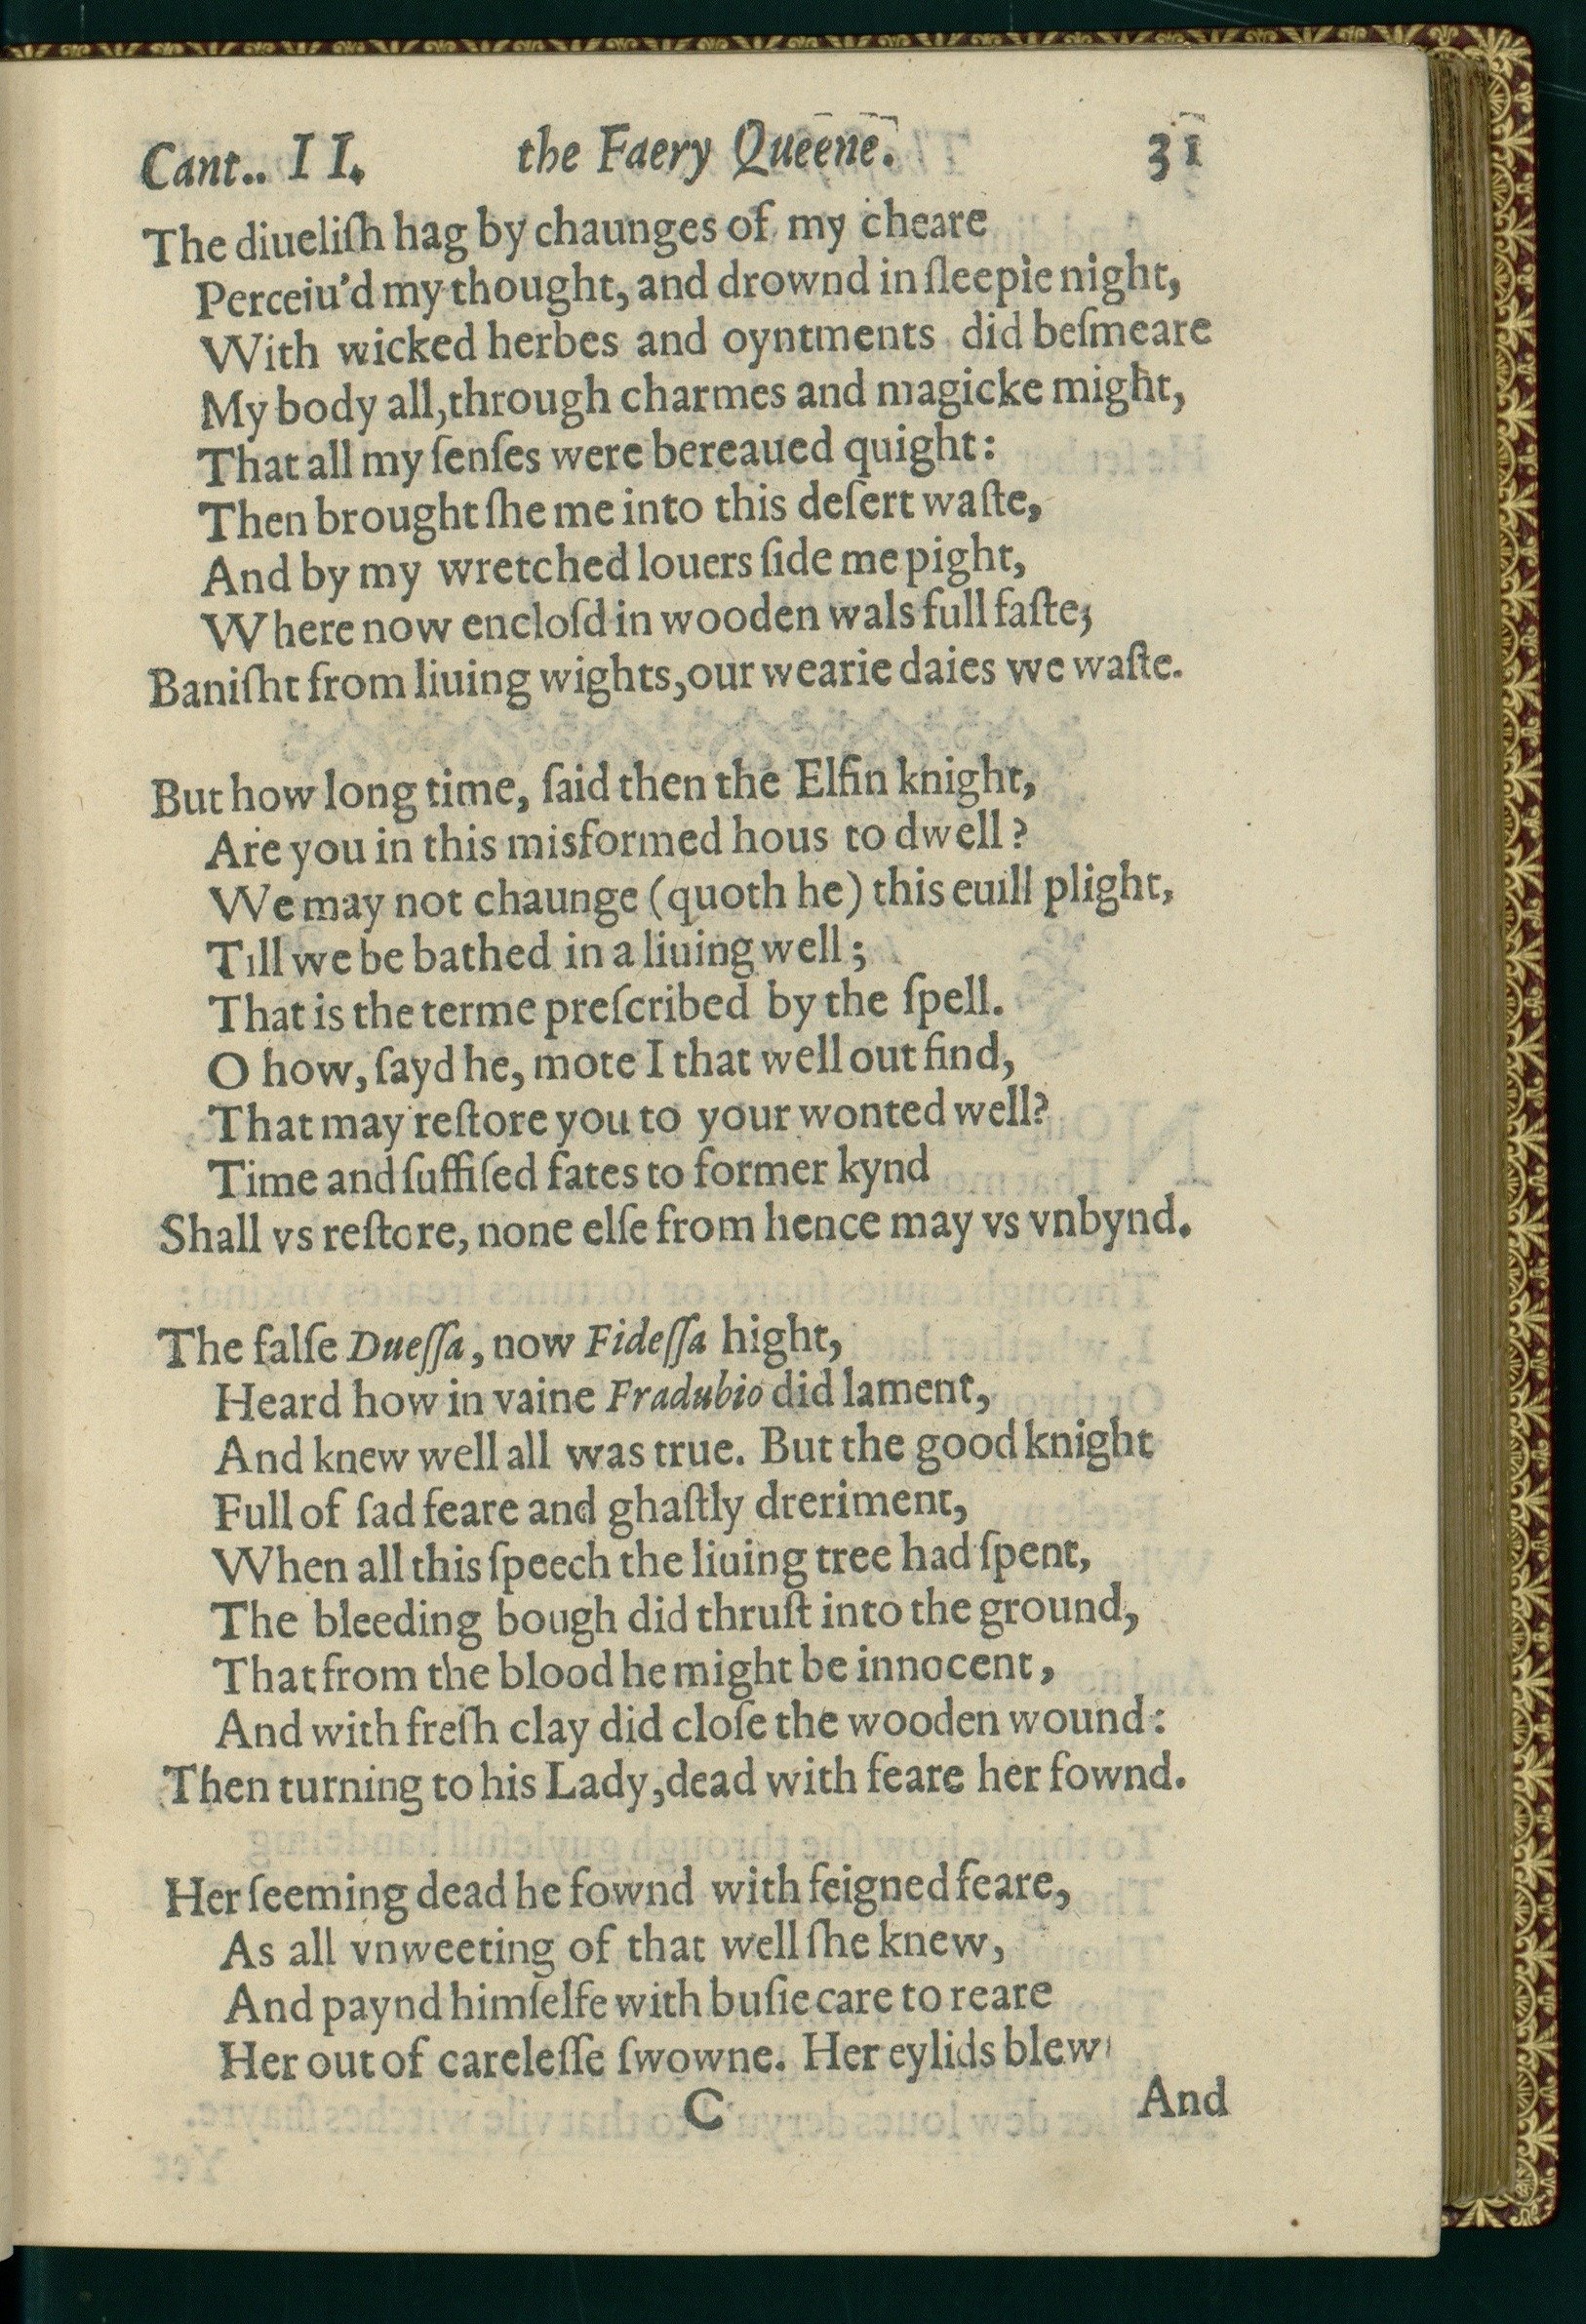 Cant.. II. the Faery Queene. 31
The diueliſh hag by chaunges of my cheare
Perceiu'd my thought, and drownd in ſleepie night,
With wicked herbes and oyntments did beſmeare
My body all, through charmes and magicke might,
That all my ſenſes were bereaued quight:
Then brought ſhe me into this deſert waſte,
And by my wretched louers ſide me pight,
Where now encloſd in wooden wals full faſte,
Baniſht from liuing wights, our wearie daies we waſte.
But how long time, ſaid then the Elfin knight,
Are you in this misformed hous to dwell?
We may not chaunge (quoth he) this euill plight,
Till we be bathed in a liuing well;
That is the terme preſcribed by the ſpell.
O how, ſayd he, mote I that well out find,
That may reſtore you to your wonted well?
Time and ſuffiſed fates to former kynd
Shall vs reſtore, none elſe from hence may vs vnbynd.
The falſe Dueſſa, now Fideſſa hight,
Heard how in vaine Fradubio did lament,
And knew well all was true. But the good knight
Full of ſad feare and ghaſtly dreriment,
When all this ſpeech the liuing tree had ſpent,
The bleeding bough did thruſt into the ground,
That from the blood he might be innocent,
And with freſh clay did cloſe the wooden wound:
Then turning to his Lady, dead with feare her fownd.
Her ſeeming dead he fownd with feigned feare,
As all vnweeting of that well ſhe knew,
And paynd himſelfe with buſie care to reare
Her out of careleſſe ſwowne. Her eylids blew
C And